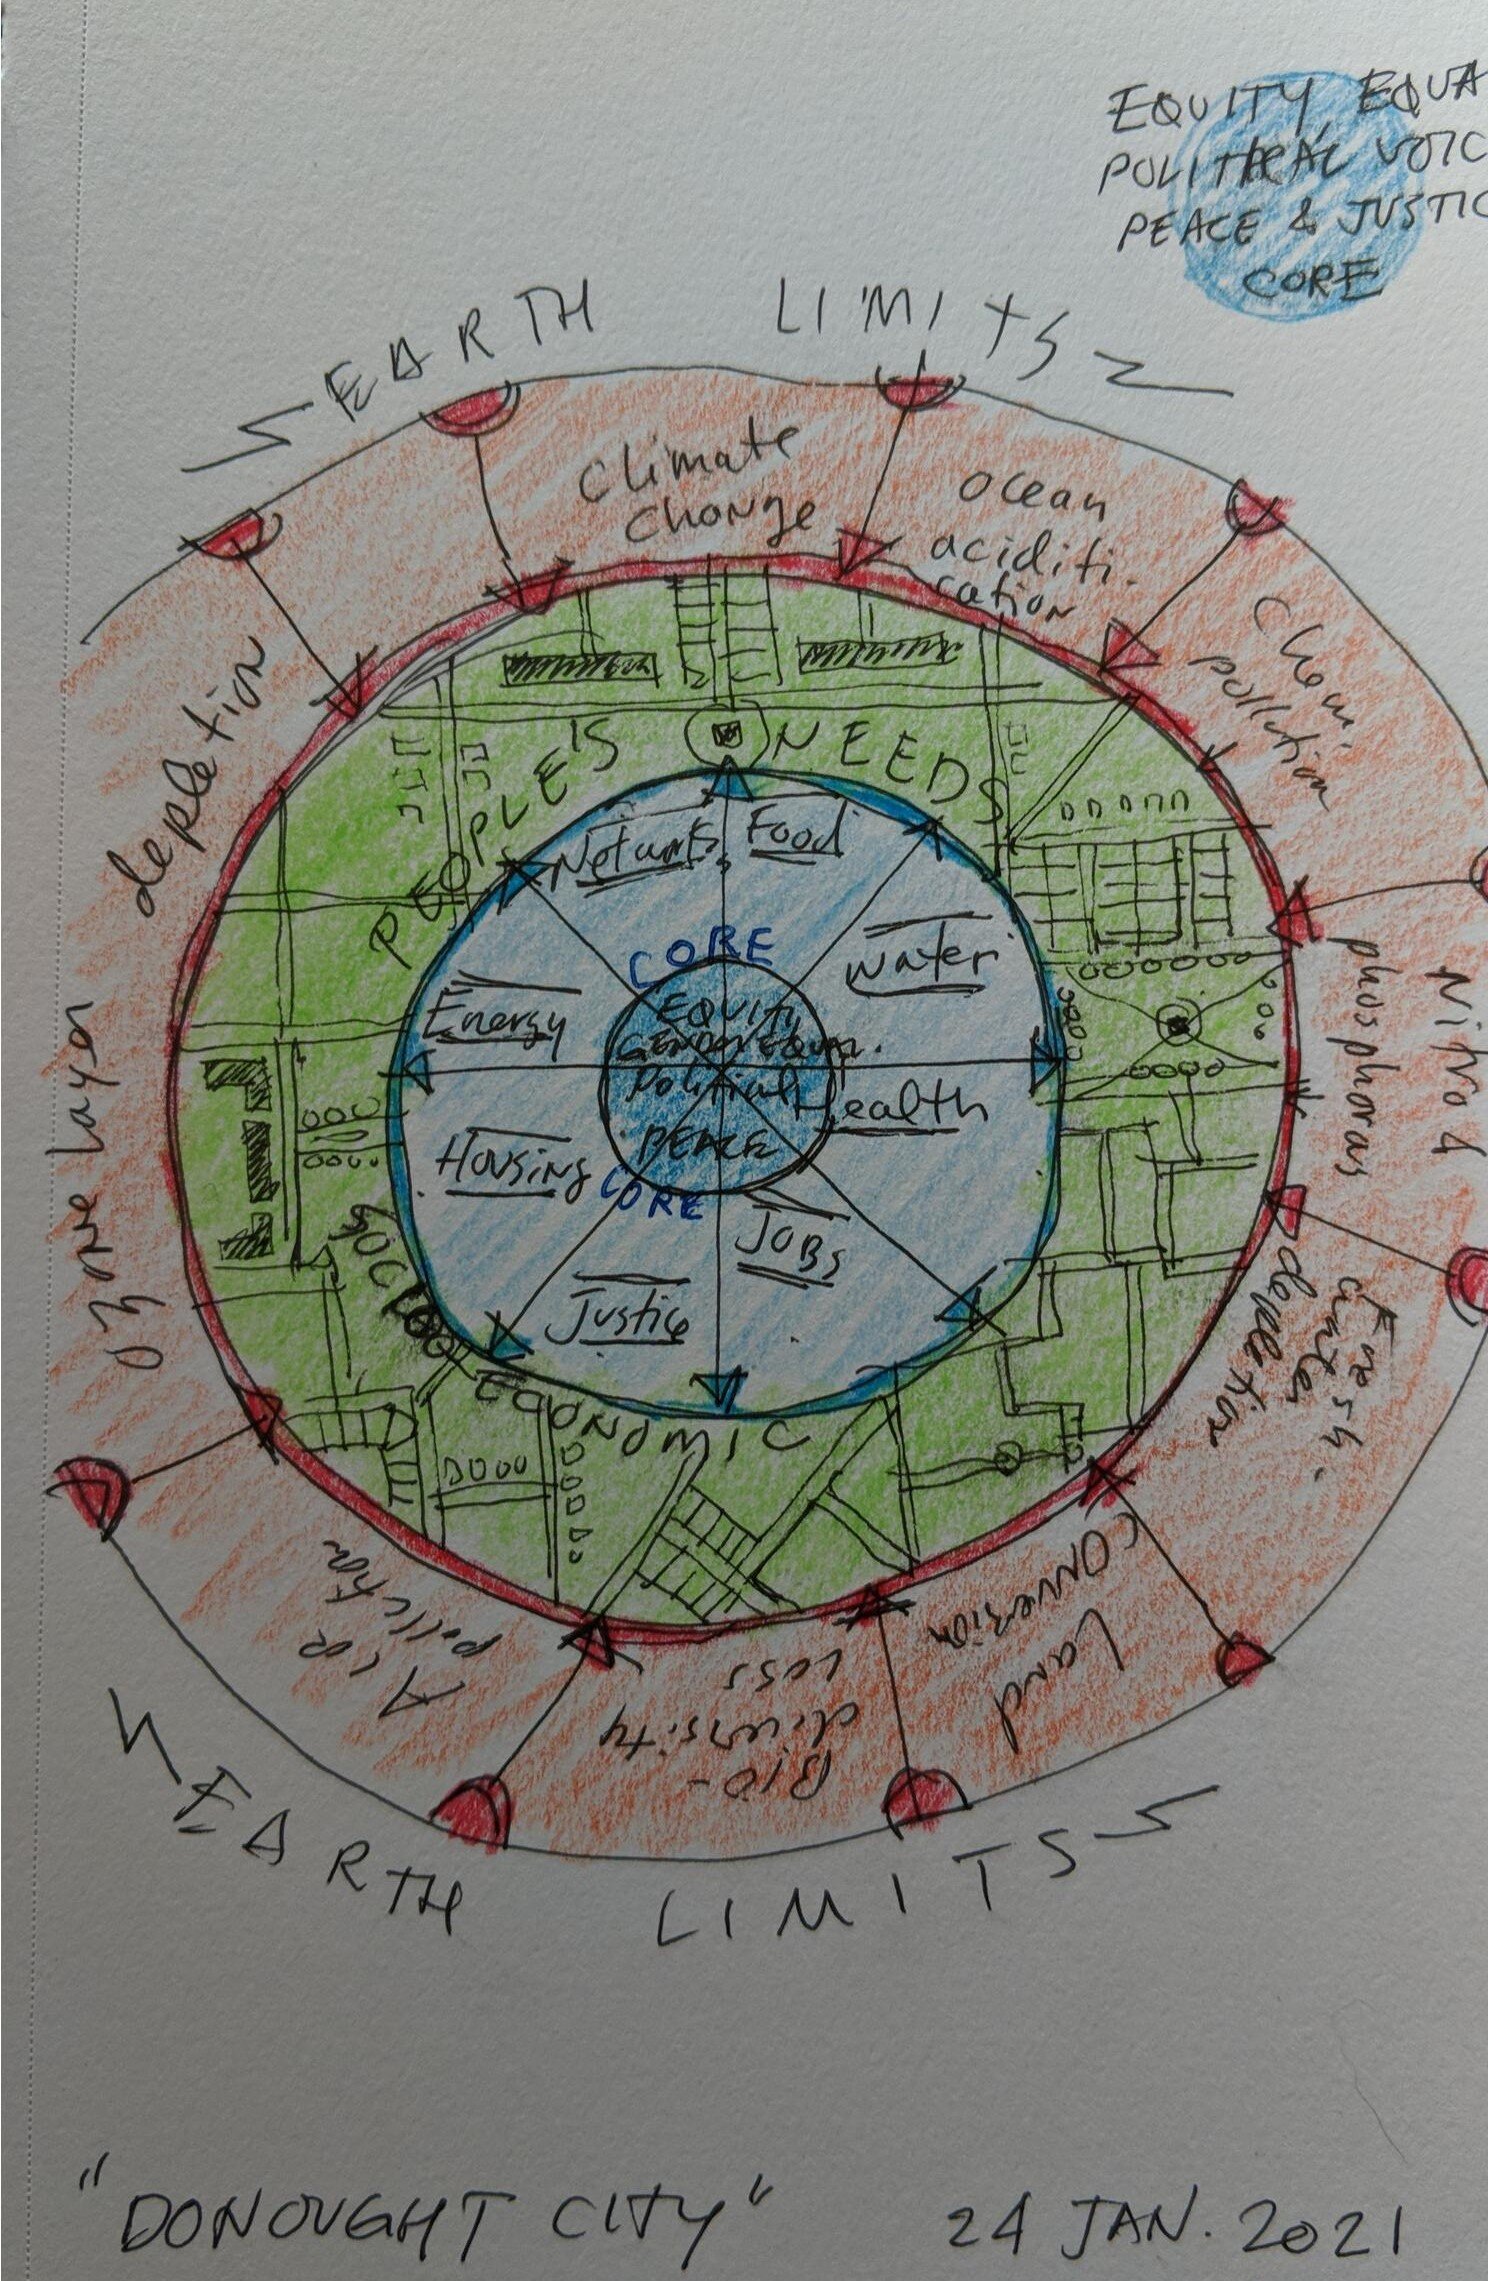 EQUITY, EQUA
POLITICAL VOIC
PEACE & JUSTIC
CORE
EARTH LIMITS
Climate
Change
Ocean
aciditi.
cation
Chem.
pollution
Nitro &
phosphoras
Fresh.
water
depletion
Land
conversion
BIO-
diversity
Loss
AIR
pollution
Ozone layer
depletion
PEOPLE'S NEEDS
Networks
Food
Water
Health
JOBS
Justice
Housing
Energy
CORE
EQUITY
GENDER EQUAL.
Political
PEACE
CORE
ECONOMIC
EARTH LIMITS
"DONOUGHT CITY" 24 JAN. 2021